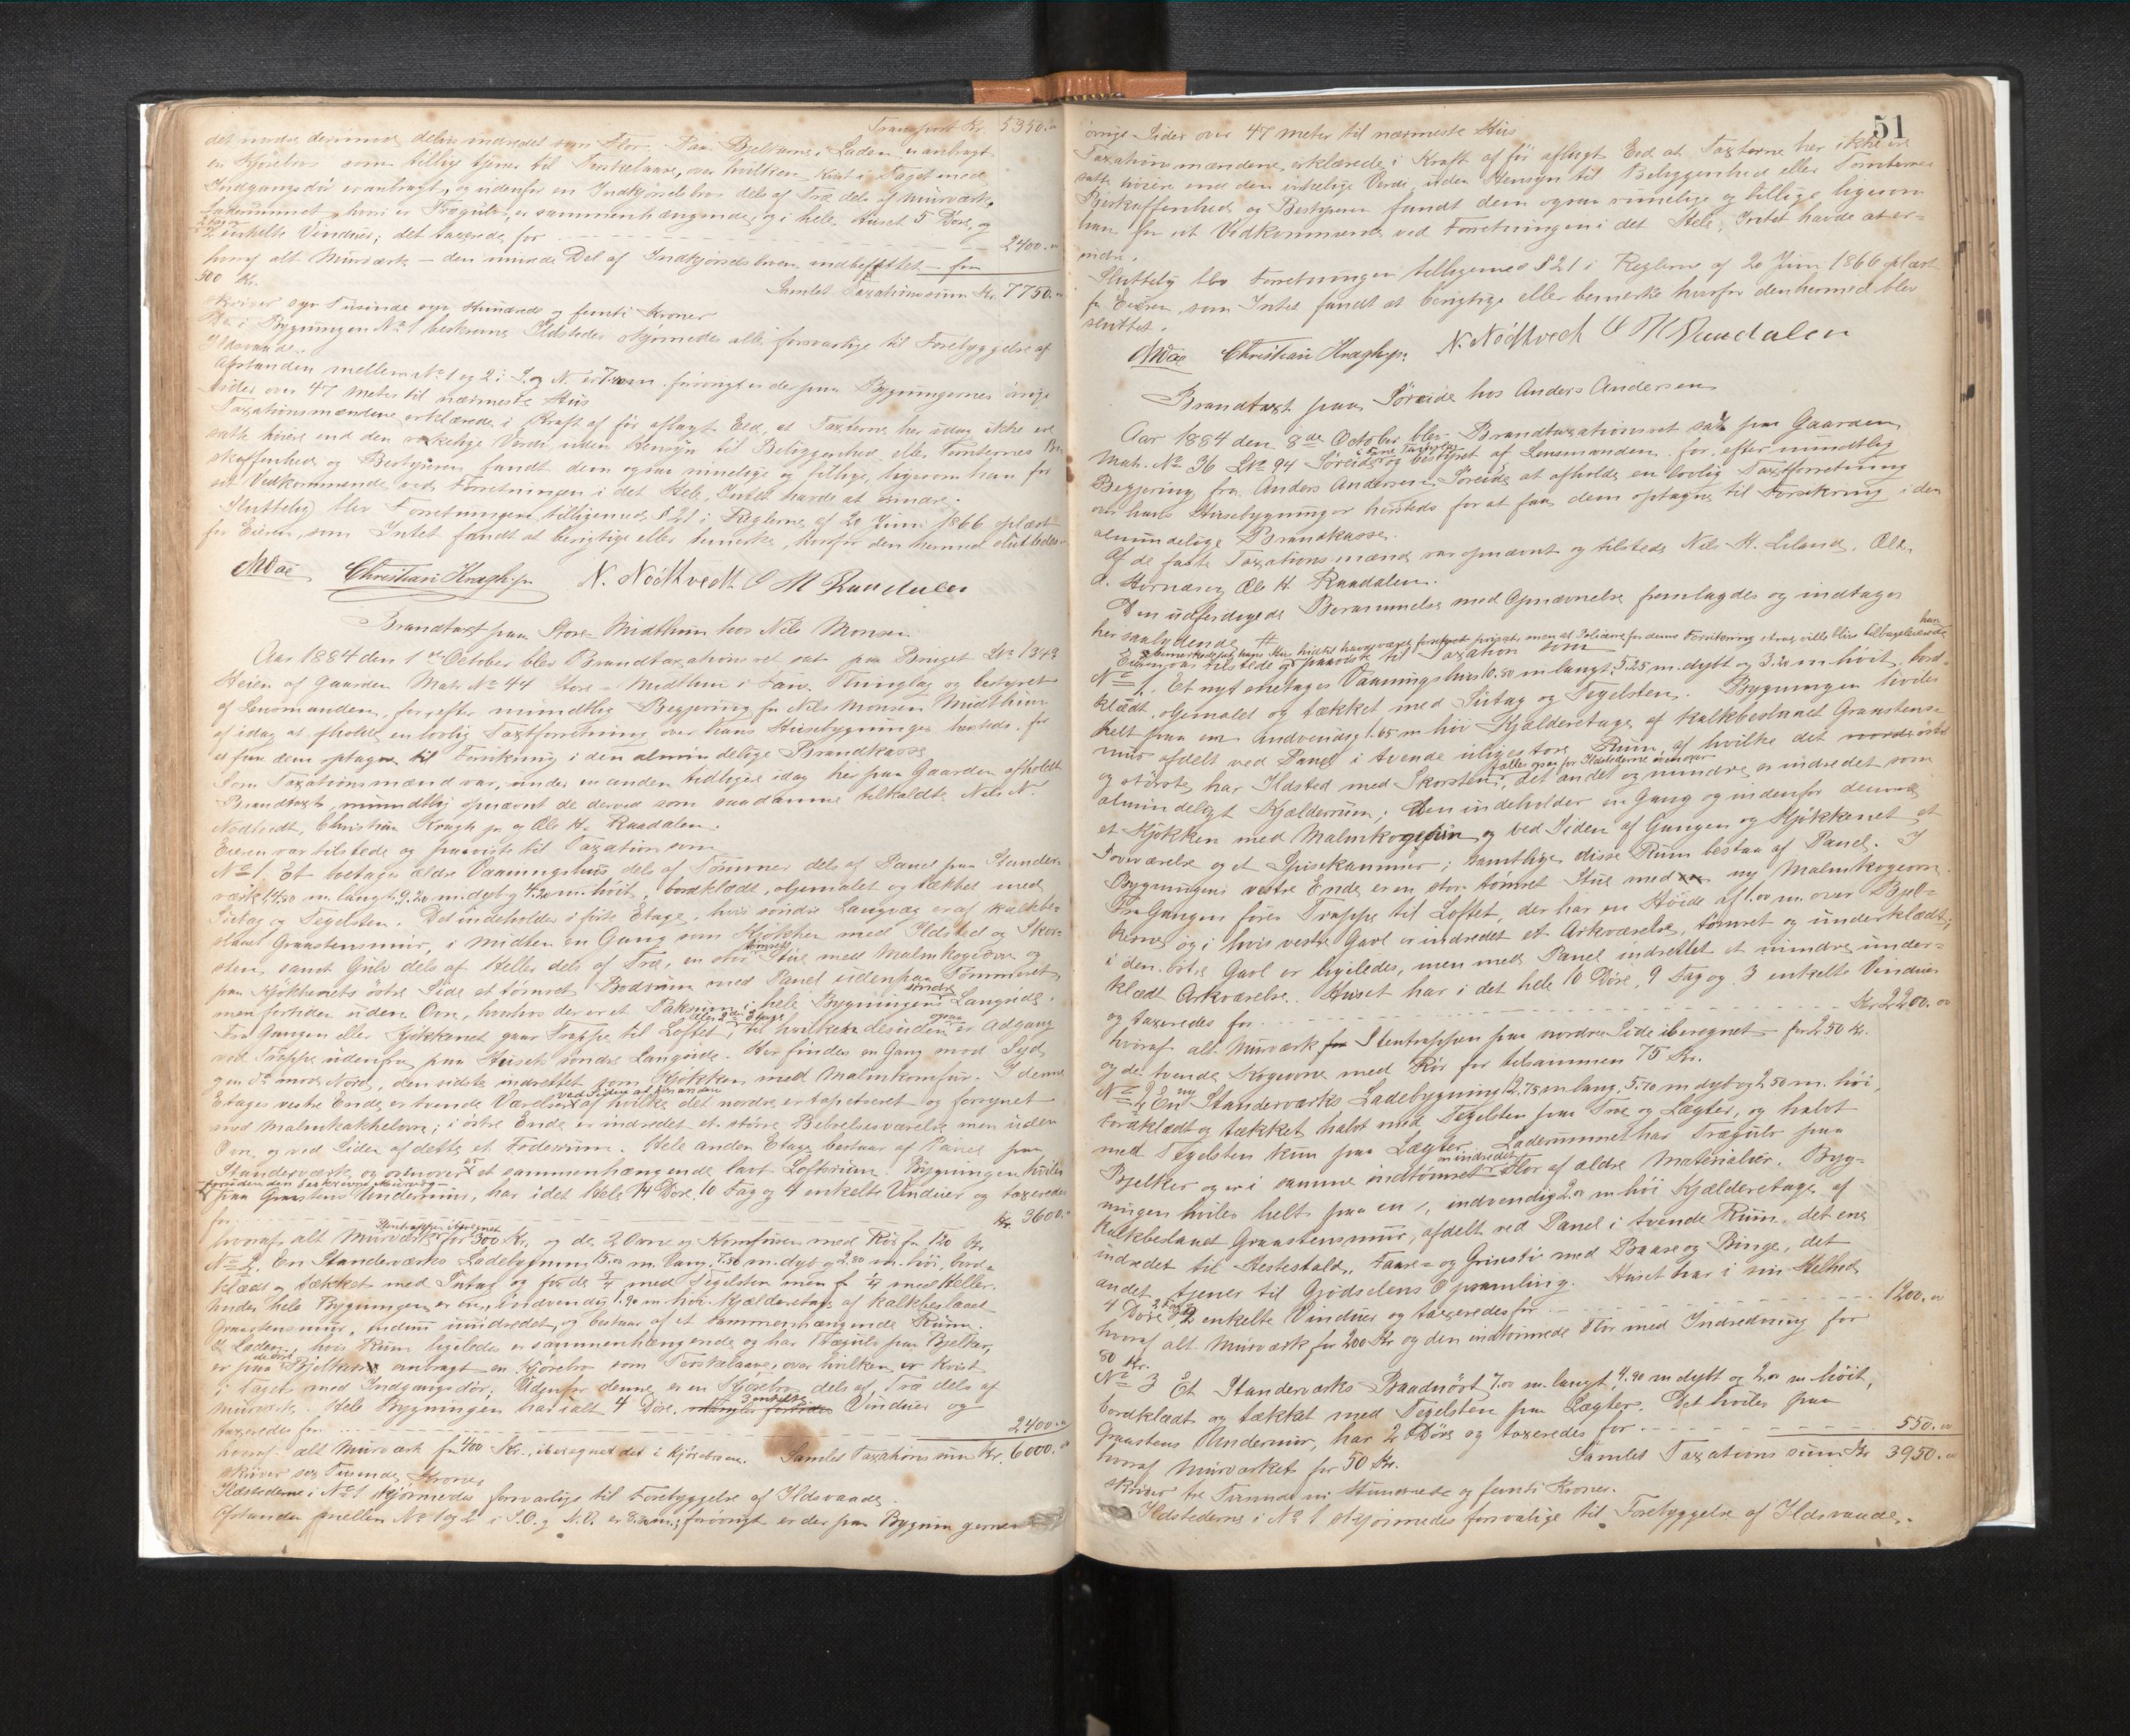 Transport Kr. 5350.00
det nordre derimod delvis indredet som Flor. Paa Bjelkerne i Laden er anbragt
en Kjørebro som tillige tjener til Treskelaave, over hvilken Kvist i Taget med
Indgangsdør er anbragt, og udenfor en Indkjørselsbro dels af Træ dels af Murværk.
Laderummet, hvori er Trægulv, er sammenhængende, og i hele Huset 5 Døre, og
2 enkelte Vinduer; det taxeredes for 2400.00
hvoraf alt Murværk – den murede Del af Indkjørselsbroen indbefattet – for
500 Kr. Samlet Taxationssum Kr. 7750.00
skriver syv Tusinde syv Hundrede og femti Kroner
De i Bygningen No 1 beskrevne Ildsteder skjønnedes alle forsvarlige til Forebyggelse af
Ildsvaade.
Afstanden mellem No 1 og 2 i S. og N. er forøvrigt er der paa Bygningernes øvrige
Sider over 47 Meter til nærmeste Hus
Taxationsmændene erklærede i Kraft af før aflagt Eed, at Taxterne her idag ikke er
satte høiere end den virkelige Verdi, uden Hensyn til Beliggenhed eller Tomternes Be-
skaffenhed og Bestyreren fandt dem ogsaa rimelige og billige, ligesom han for
sit Vedkommende ved Forretningen i det Hele, Intet havde at erindre.
Sluttelig blev Forretningen tilligemed § 21 i Reglerne af 20 Juni 1866 oplæst
for Eieren, som Intet fandt at berigtige eller bemerke, hvorfor den hermed sluttedes.
Christian Kragh jr. N. Nødtvedt O H Raadalen
Brandtaxt paa Store-Midthun hos Nils Monsen
Aar 1884 den 1ste October blev Brandtaxationsret sat paa Bruget LNo 134
Heien af Gaarden Mat. No 44 Store-Midthun i Fane Thinglag og bestyret
af Lensmanden, for, efter mundtlig Begjering fra Nils Monsen Midthun
af idag at afholde en lovlig Taxtforretning over hans Husebygninger hersteds, for
at faa dem optagne til Forsikring i den almindelige Brandkasse
Som Taxationsmænd var, under en anden tidligere idag her paa Gaarden afholdt
Brandtaxt, mundtlig opnævnt de derved som saadanne tilkaldte Nils N.
Nødtvedt, Christian Kragh jr. og Ole H. Raadalen.
Eieren var tilstede og paaviste til Taxation som
No 1. Et toetages ældre Vaaningshus dels af Tømmer dels af Panel paa Stender-
værk, 14.50 m. langt, 9.20 m. dybt og 4.20 m. høit, bordklædt, oljemalet og tækket med
Sutag og Tegelsten. Det indeholder i første Etage, hvis søndre Langvæg er af kalkbe-
slaaet Graastensmur, i Midten en Gang som Kjøkken med Ildsted og Skor-
sten samt Gulv dels af Heller dels af Træ, en stor tømret Stue med Malmkogeovn og
paa Kjøkkenets østre Side et tømret Bodrum med Panel udenpaa Tømmeret
men fortiden uden Ovn, hvorhos der er et Pakrum i hele Bygningens søndre Langside.
Fra Gangen eller Kjøkkenet gaar Trappe til Loftet eller 2den Etage, til hvilken desuden ogsaa er Adgang
ved Trappe udenfra paa Husets søndre Langside. Her findes en Gang mod Syd
og en do mod Nord, den sidste indrettet som Kjøkken med Malmkomfur. I denne
Etages vestre Ende er tvende Værelser ved Siden af hinanden af hvilke det nordre er tapetseret og forsynet
med Malmkakkelovn; i østre Ende er indredet et større Beboelsesværelse men uden
Ovn og ved Siden af dette et Foderum. Hele anden Etage bestaar af Panel paa
Stenderværk og ovenover er et sammenhængende lavt Loftsrum. Bygningen hviler
foruden den beskrevne Murvæg –
paa Graastens Undermur, har i det Hele 14 Døre, 10 Fag og 4 enkelte Vinduer og taxeredes
for Kr. 3600.00
hvoraf alt Murværk Stentrappe iberegnet for 300 Kr, og de 2 Ovne og Komfuren med Rør for 120 Kr.
No 2. En Stenderværks Ladebygning 15.00 m. lang, 7.50 m. dyb og 2.80 m. høi, bord-
klædt og tækket med Sutag og for de 3/4 med Tegelsten men for 1/4 med Heller.
Under hele Bygningen er en, indvendig 1.90 m. høi Kjælderetage af kalkbeslaaet
Graastensmur, endnu uindredet, og bestaar af et sammenhængende Rum.
I Laden, hvis Rum ligeledes er sammenhængende og har Trægulv paa Bjelker,
er paa Bjelkerne anbragt en Kjørebro som Treskelaave, over hvilken er Kvist
i Taget med Indgangsdør; Udenfor denne er en Kjørebro dels af Træ dels af
Murværk. Hele Bygningen har ialt 4 Døre, 3 enkelte Vinduer og
taxeredes for 2400.00
hvoraf alt Murværk for 400 Kr. iberegnet det i Kjørebroen. Samlet Taxationssum Kr. 6000.00
skriver sex Tusinde Kroner
Ildstederne i No 1 skjønnedes forsvarlige til Forebyggelse af Ildsvaade.
Afstanden mellem No 1 og 2 i S.O. og N.V. er forøvrigt er der paa Bygningernes
51
øvrige Sider over 47 Meter til nærmeste Hus
Taxationsmændene erklærede i Kraft af før aflagt Eed at Taxterne her ikke er
satte høiere end den virkelige Verdi, uden Hensyn til Beliggenhed eller Tomternes
Beskaffenhed og Bestyreren fandt dem ogsaa rimelige og billige ligesom
han for sit Vedkommende ved Forretningen i det Hele, Intet havde at er-
indre.
Sluttelig blev Forretningen tilligemed § 21 i Reglerne af 20 Juni 1866 oplæst
for Eieren, som Intet fandt at berigtige eller bemerke hvorfor den hermed blev
sluttet.
Christian Kragh jr. N. Nødtvedt O H Raadalen
Brandtaxt paa Søreide hos Anders Andersen
Aar 1884 den 8de October blev Brandtaxationsret sat paa Gaarden
Mat. No 36 LNo 94 Søreide i Fane Thinglag og bestyret af Lensmanden for, efter mundtlig
Begjering fra Anders Andersen Søreide at afholde en lovlig Taxtforretning
over hans Husebygninger hersteds for at faa dem optagne til Forsikring i den
almindelige Brandkasse.
Af de faste Taxationsmænd var opnævnt og tilstede Nils H. Liland, Ole
A. Hornæs og Ole H. Raadalen.
Den udferdigede Berammelse med Opnævnelse fremlagdes og indtages
her saalydende #
& bemærkede at hans Hus hidtil havde været forsikret privat, men at Policerne for denne Forsikring strax ville blive tilbageleverede
Eieren var tilstede og paaviste til Taxation som
No 1. Et nyt eneetages Vaaningshus 10.80 m langt, 5.25 m. dybt og 3.20 m høit, bord-
klædt, oljemalet og tækket med Sutag og Tegelsten. Bygningen hviler
helt paa en indvendig 1.65 m høi Kjælderetage af kalkbeslaaet Graastens-
mur afdelt ved Panel i tvende ulige store Rum, af hvilke det østre
og største har Ildsted med Skorsten, fælles ogsaa for Ildstederne ovenover det andet og mindre er indredet som
almindeligt Kjælderrum; Den indeholder en Gang og indenfor denne
et Kjøkken med Malmkogeovn og ved Siden af Gangen og Kjøkkenet et
Forværelse og et Spisekammer; samtlige disse Rum bestaa af Panel. I
Bygningens vestre Ende er en stor tømret Stue med ny Malmkogeovn.
Fra Gangen fører Trappe til Loftet, der har en Høide af 1.00 m. over Bjel-
kerne og i hvis vestre Gavl er indredet et Arkværelse, tømret og underklædt;
i den østre Gavl er ligeledes, men med Panel indrettet et mindre under-
klædt Arkværelse. Huset har i det hele 10 Døre, 9 Fag og 3 enkelte Vinduer
og taxeredes for Kr 2200.00
hvoraf alt Murværk Stentrappen paa nordre Side iberegnet – for 250 Kr.
og de tvende Kogeovne med Rør for tilsammen 75 Kr.
No 2 En ny Stenderværks Ladebygning 12.75 m lang, 5.70 m dyb og 2.50 m. høi,
bordklædt og tækket halvt med Tegelsten paa Træ og Lægter, og halvt
med Tegelsten kun paa Lægter. Laderummet har Trægulv paa
Bjelker og er i samme indtømret en indredet Flor af ældre Materialier. Byg-
ningen hviler helt paa en, indvendig 2.00 m høi Kjælderetage af
kalkbeslaaet Graastensmur, afdelt ved Panel i tvende Rum, det ene
indredet til Hestestald, Faare- og Grisesti med Baase og Binge, det
andet tjener til Gjødselens Opsamling. Huset har i sin Helhed
4 Døre, 2 enkelte Vinduer og taxeredes for 1200.00
hvoraf alt Murværk for 200 Kr og den indtømrede Flor med Indredning for
80 Kr.
No 3 Et Stenderværks Baadnøst 7.00 m. langt, 4.90 m dybt og 2.00 m høit,
bordklædt og tækket med Tegelsten paa Lægter. Det hviler paa
Graastens Undermur, har 2 Døre og taxeredes for 550.00
hvoraf Murværket for 50 Kr. Samlet Taxationssum Kr 3950.00
skriver tre Tusinde ni Hundrede og femti Kroner.
Ildstederne i No 1 skjønnedes forsvarlige til Forebyggelse af Ildsvaade.